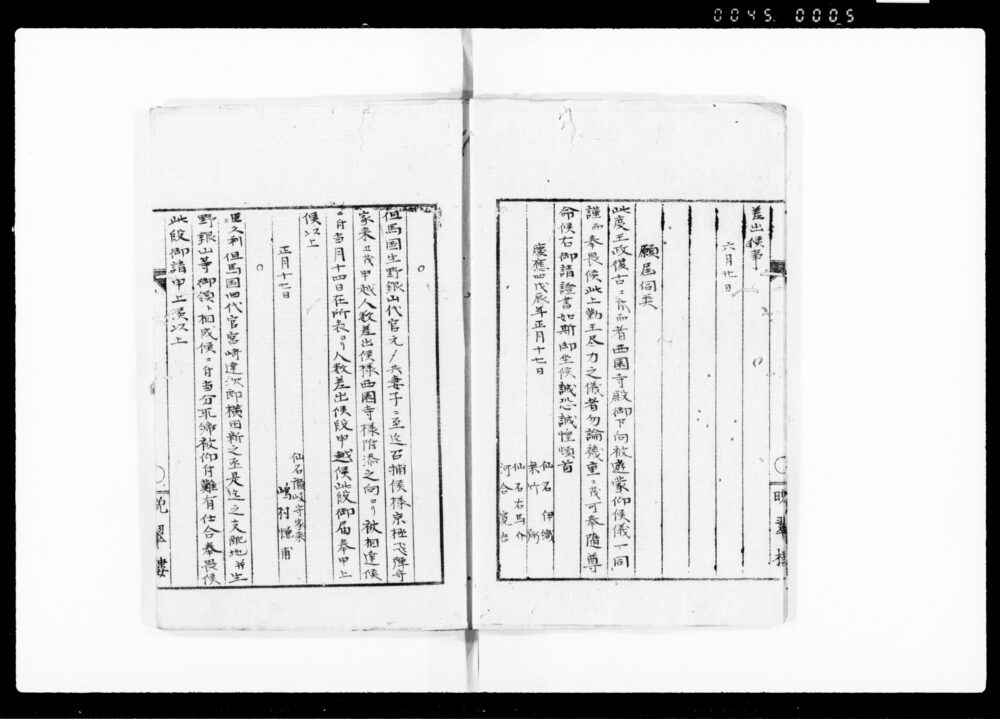 0045. 0005
差出候事
六月廿日
願届伺类
此度王政復古ニ付而者西園寺殿御下向被遊蒙仰候儀一同
謹而奉畏候此上勤王尽力之儀者勿論幾重ニ茂可奉随尊
命候右御請證書如斯御坐候誠恐誠惶頓首
慶應四戊辰年正月十七日
仙石伊織
仙石右馬介
河合寛吾
晩翠楼
但馬国生野銀山代官元〆共妻子ニ至迄召捕候様京極飛騨守
家来ゟ茂申越人数差出候様西園寺様附添之向ゟ被相達候
ニ付当月十四日在所表ゟ人数差出候段申越候此段御届奉申上
候以上
正月十七日
仙石讃岐守家来
嶋村愼甫
里久利但馬国四代官宮崎達次郎横田新之丞是迄之支配地并生
野銀山等御領ニ相成候ニ付当分取締被仰付難有仕合奉畏候
此段御請申上候以上
晩翠楼